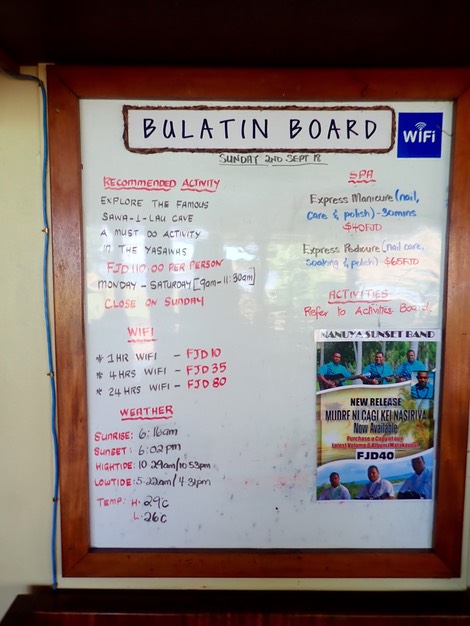 BULATIN BOARD
WiFi
SUNDAY 2ND SEPT 18
RECOMMENDED ACTIVITY
EXPLORE THE FAMOUS
SAWA-I-LAU CAVE
A MUST DO ACTIVITY
IN THE YASAWAS
FJD 110.00 PER PERSON
MONDAY - SATURDAY [9am-11:30am]
CLOSE ON SUNDAY
WIFI
* 1HR WIFI - FJD 10
* 4HRS WIFI - FJD 35
* 24HRS WIFI - FJD 80
WEATHER
SUNRISE: 6:16am
SUNSET: 6:02pm
HIGHTIDE: 10:29am/10:53pm
LOWTIDE: 5:22am/4:31pm
TEMP: H: 29°C
L: 26c
SPA
Express Manicure (nail,
care & polish) - 30mins
$40FJD
Express Pedicure (nail care,
soaking & polish) $65FJD
ACTIVITIES
Refer to Activities Board.
NANUYA SUNSET BAND
NEW RELEASE
MUDRE NI CAGI KEI NASIRIVA
Now Available
Purchase a Copy of our
Latest Volume 6 Album
FJD40